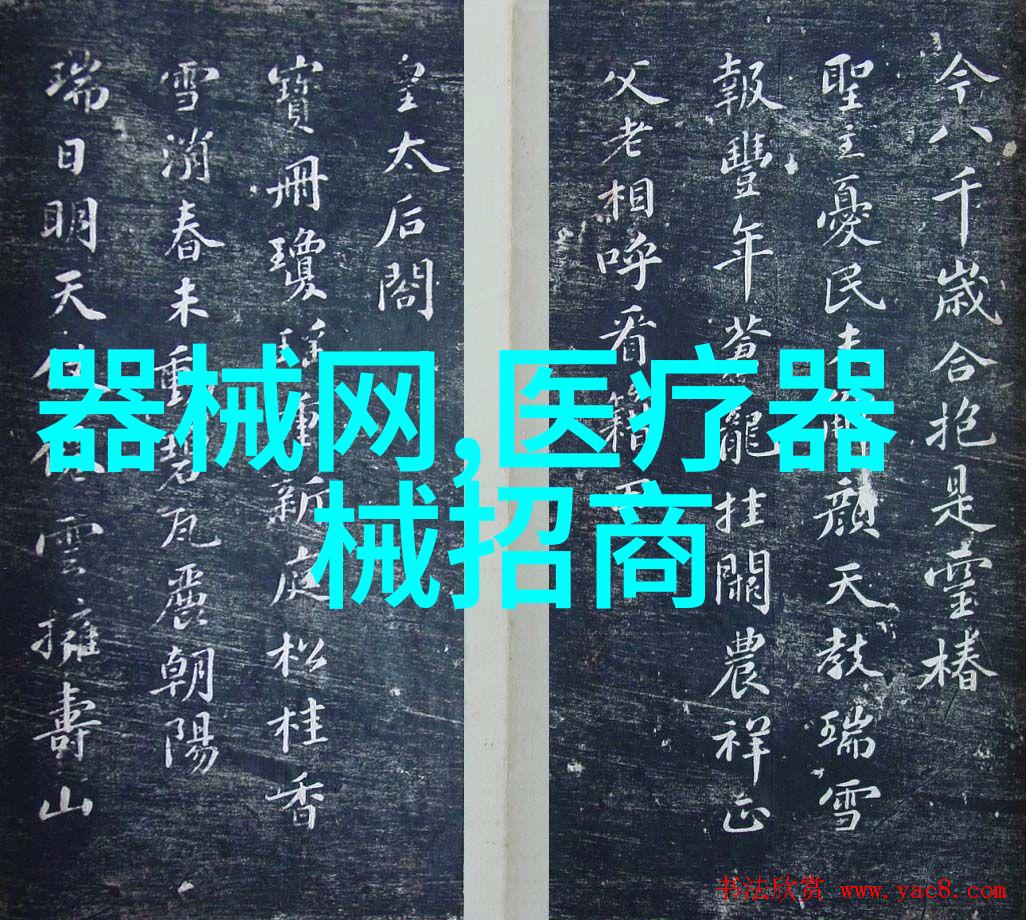 今八千歲合抱是靈椿
聖主憂民未顏天教瑞雪
報豐年蒼龍挂闕農祥正
父老相呼看籍
皇太后閣
寶冊瓊瑤重新庭松桂香
雪消春未動碧瓦麗朝陽
瑞日明天雲擁壽山
器械网,医疗器
械招商
书法欣赏 www.yac8.com